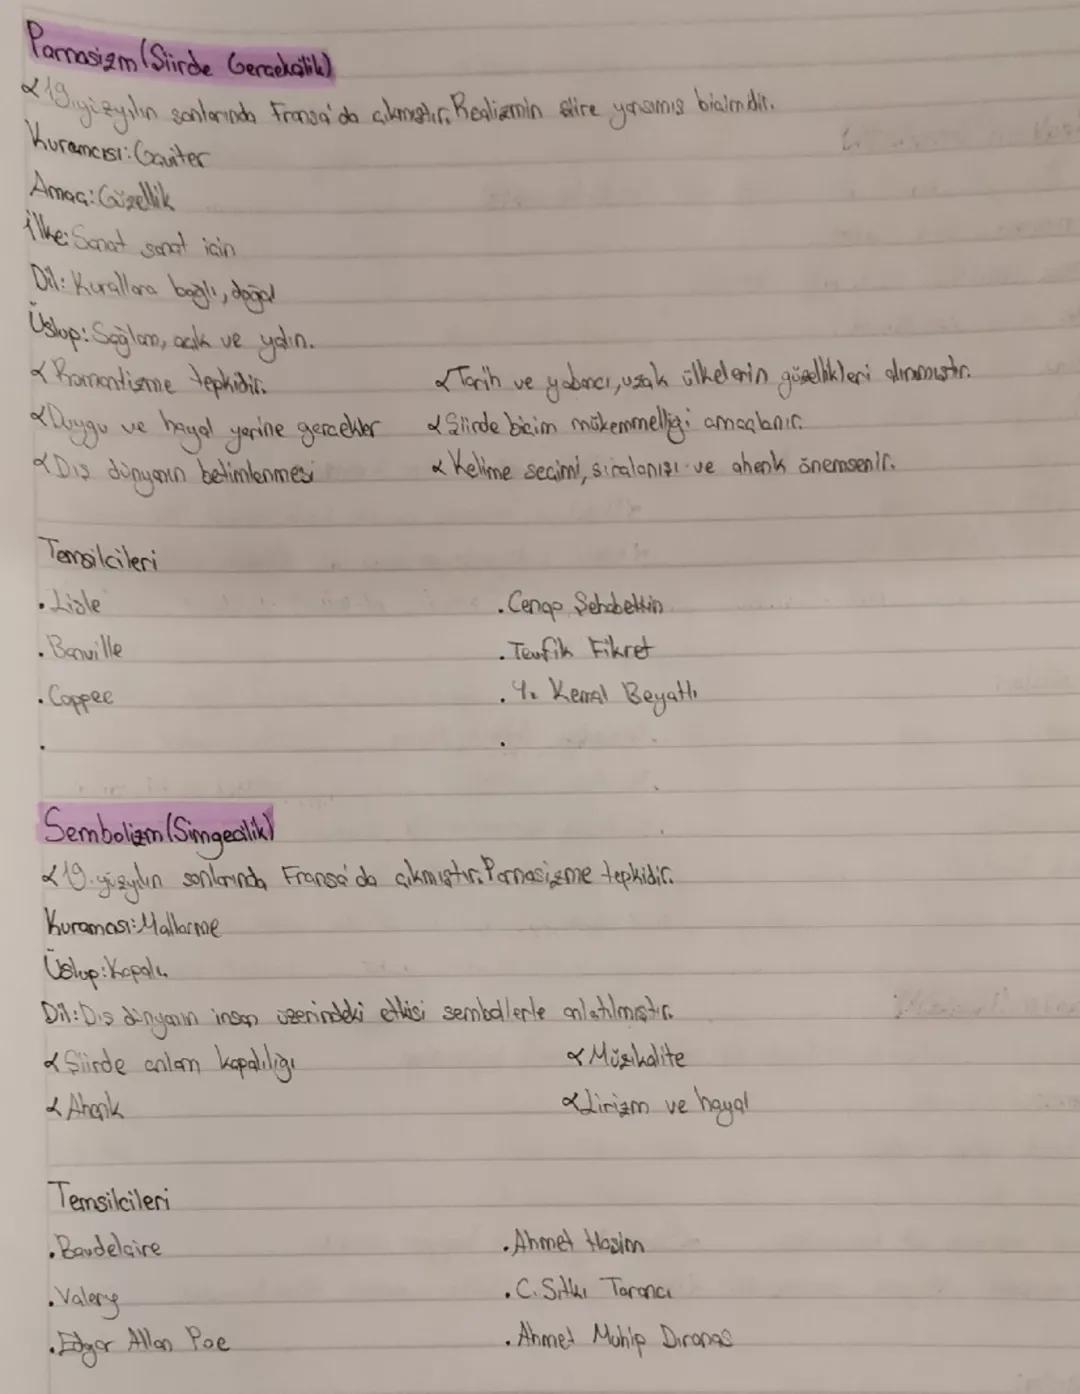 Parnasizm (Şiirde Gerçekçilik)
19. yüzyılın sonlarında Fransa'da çıkmıştır. Realizmin şiire yansımış biçimidir.
Kuramcısı: Gautier
Amaç: Güzellik
İlke: Sanat sanat için
Dil: Kurallara bağlı, doğal
Üslup: Sağlam, açık ve yalın.
Romantizme tepkidir.
Duygu ve hayal yerine gerçekler
Dış dünyanın betimlenmesi
Tarih ve yabancı, uzak ülkelerin güzellikleri alınmıştır.
Şiirde biçim mükemmelliği amaçlanır.
Kelime seçimi, sıralanışı ve ahenk önemsenir.
Temsilcileri
. Lisle
. Banville
. Coppee
.
. Cenap Şehabettin
. Tevfik Fikret
. Y. Kemal Beyatlı
.
Sembolizm (Simgecilik)
19. yüzyılın sonlarında Fransa'da çıkmıştır. Parnasizme tepkidir.
Kuramcısı: Mallarme
Üslup: Kapalı.
Dil: Dış dünyanın insan üzerindeki etkisi sembollerle anlatılmıştır.
Şiirde anlam kapalılığı
Ahenk
Müzikalite
Lirizm ve hayal
Temsilcileri
. Baudelaire
. Valery
. Edgar Allan Poe
. Ahmet Haşim
. C. Sıtkı Tarancı
. Ahmet Muhip Dıranas